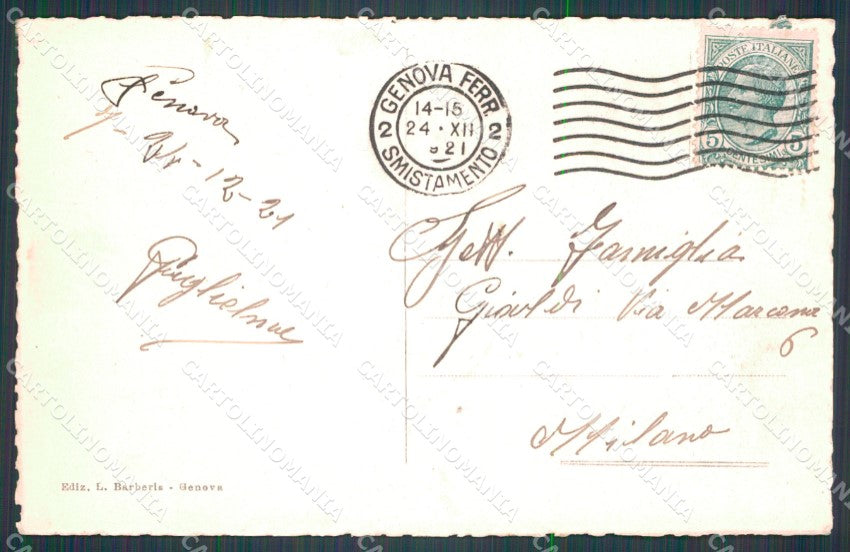 Genova
24-12-21
Ediz. L. Barberis - Genova
GENOVA FERR.
14-15
24 · XII
921
2 2
SMISTAMENTO
POSTE ITALIANE
5 CENTESIMI 5
Gett. Famiglia
Via Marcona
6
Milano
CARTOLINOMANIA